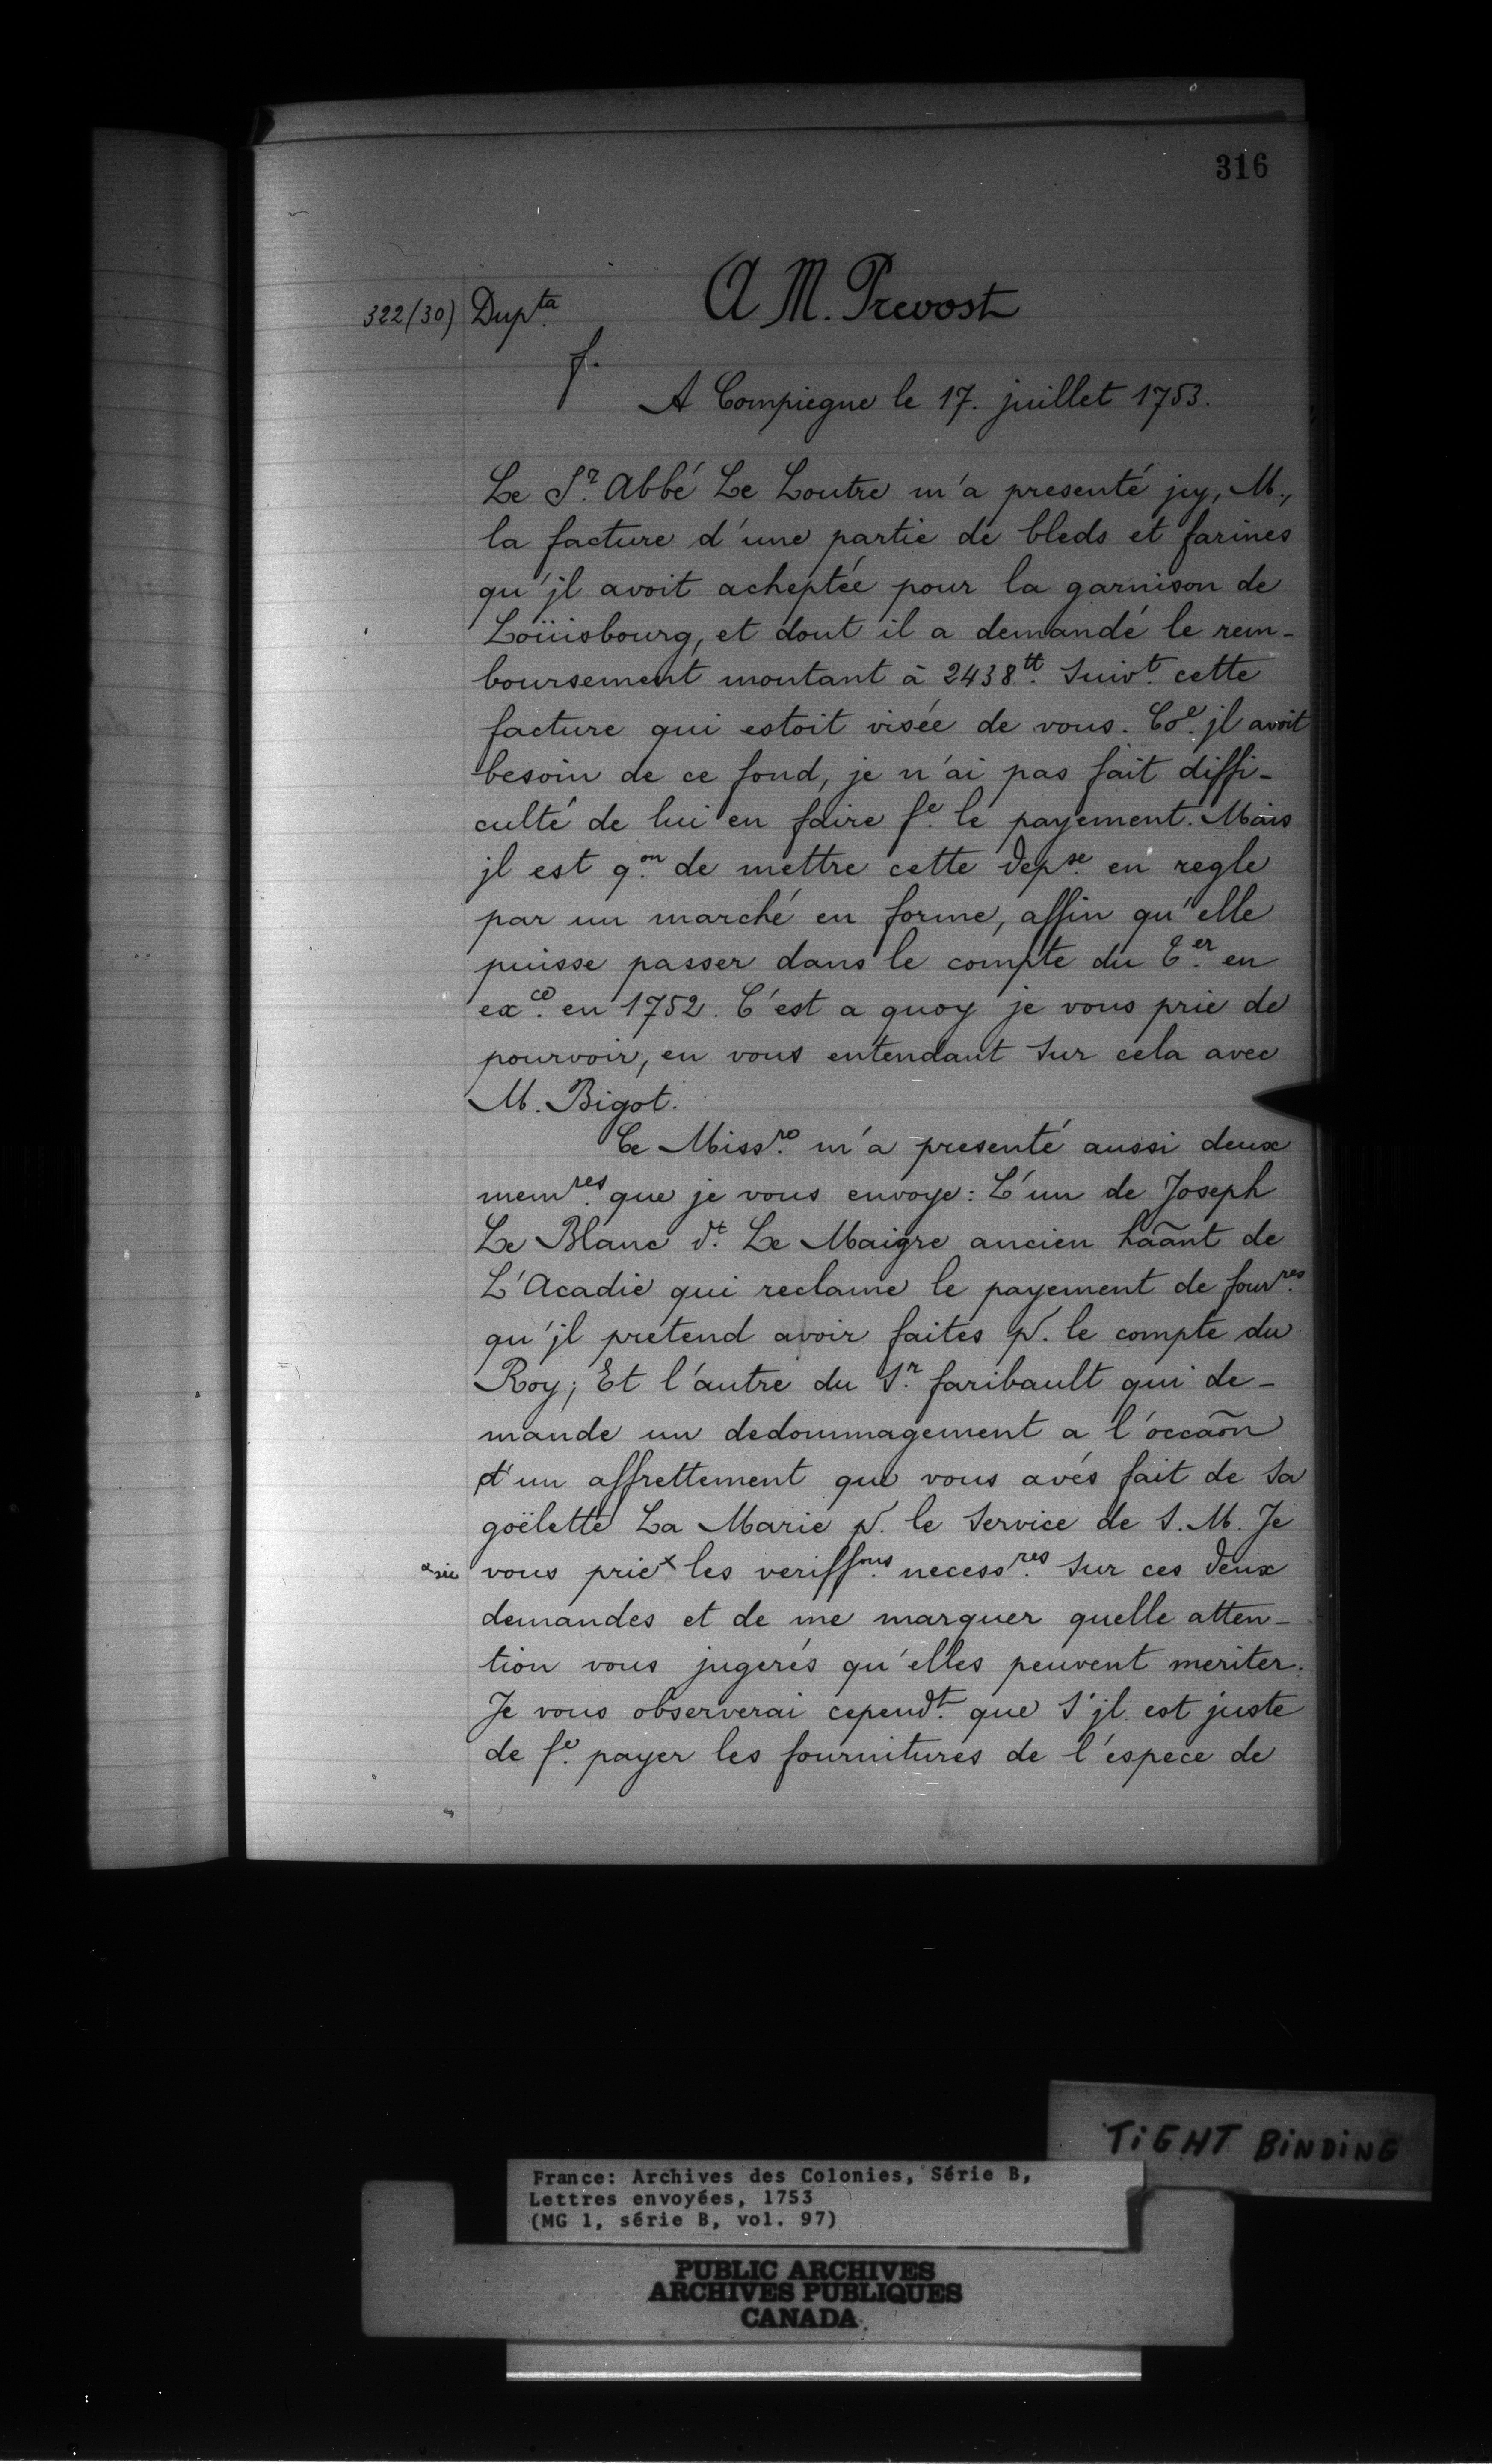 316
322/(30) Dupta.
A M. Prevost
f.
A Compiegne le 17. juillet 1753.
Le Sr. Abbé Le Loutre m'a presenté jcy, M.,
la facture d'une partie de bleds et farines
qu'jl avoit acheptée pour la garnison de
Loüisbourg, et dont il a demandé le rem-
boursement montant à 2438tt. Suivt. cette
facture qui estoit visée de vous. Coe. jl avoit
besoin de ce fond, je n'ai pas fait diffi-
culté de lui en faire fe. le payement. Mais
jl est qon. de mettre cette depse. en regle
par un marché en forme, affin qu'elle
puisse passer dans le compte du Cer. en
exce. en 1752. C'est a quoy je vous prie de
pourvoir, en vous entendant Sur cela avec
M. Bigot.
Ce Missre. m'a presenté aussi deux
memres. que je vous envoye: L'un de Joseph
Le Blanc dt. Le Maigre ancien hãant de
L'Acadie qui reclame le payement de fourres.
qu'jl pretend avoir faites p. le compte du
Roy; Et l'autre du Sr. faribault qui de-
mande un dedommagement a l'occaõn
d'un affrettement que vous avés fait de Sa
goëlette La Marie p. le Service de S. M. Je
x sic vous prie x les veriffons. necessres. Sur ces deux
demandes et de me marquer quelle atten-
tion vous jugerés qu'elles peuvent meriter.
Je vous observerai cependt. que S'jl est juste
de fe. payer les fournitures de l'espece de
TIGHT BINDING
France: Archives des Colonies, Série B,
Lettres envoyées, 1753
(MG 1, série B, vol. 97)
PUBLIC ARCHIVES
ARCHIVES PUBLIQUES
CANADA